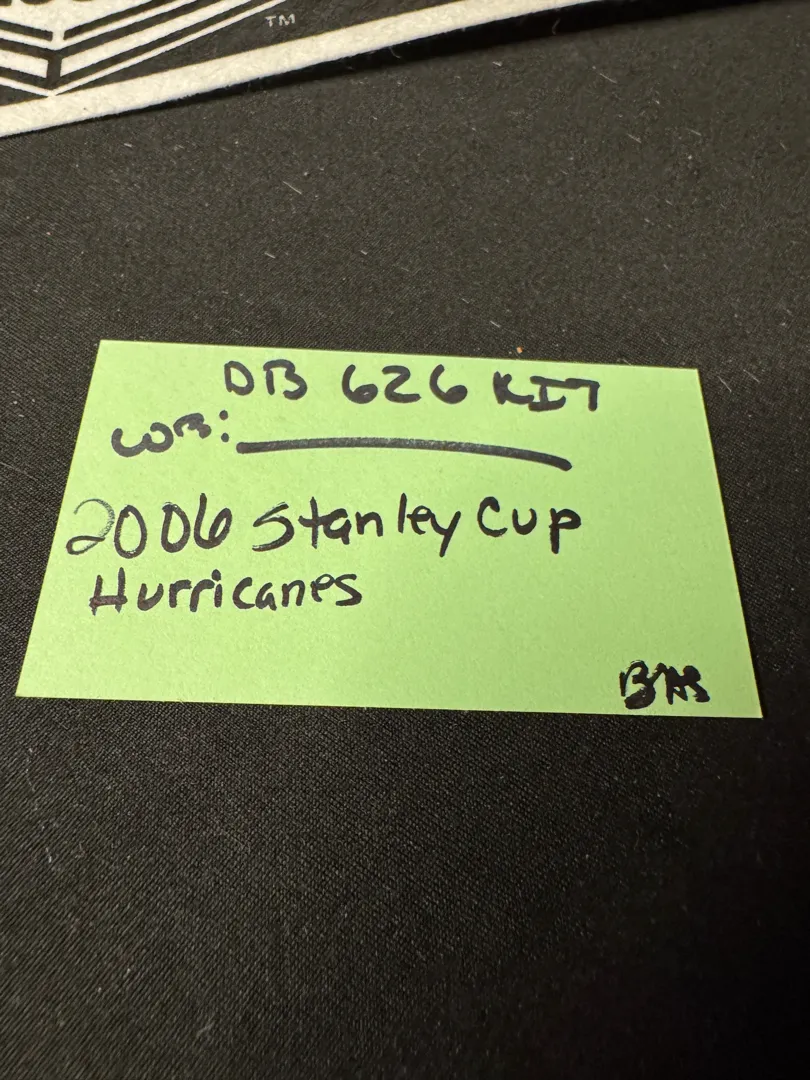 TM
DB 626 KIT
WB:
2006 Stanley Cup
Hurricanes
BAS